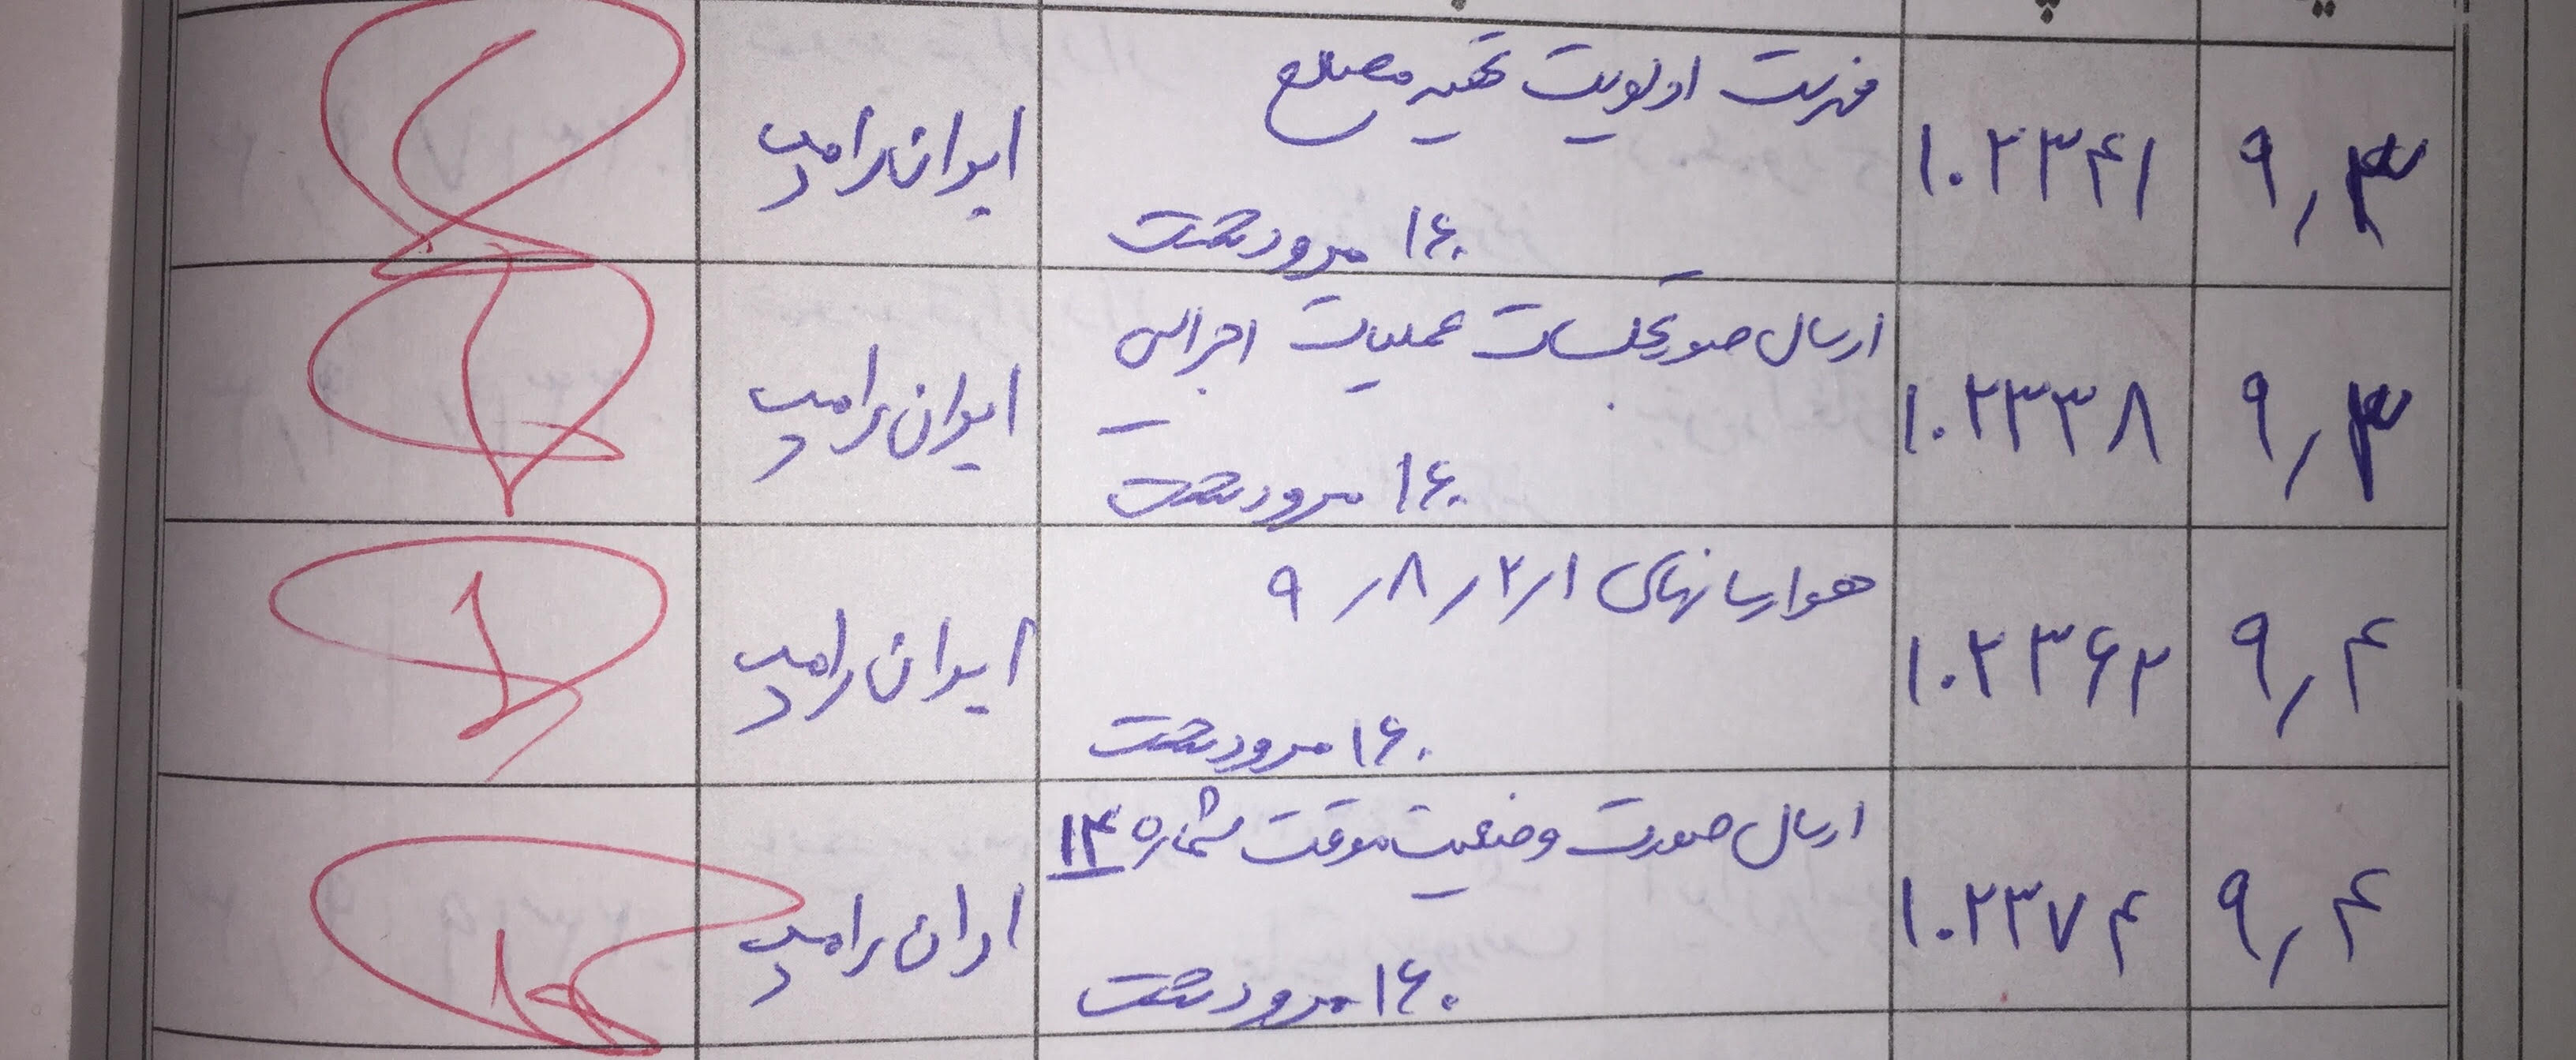 ۹٫۳
۱۰۲۳۴۱
فهرست اولویت تهیه مصالح
۱۶۰ مرودشت
ایران رامپ
۹٫۳
۱۰۲۳۳۸
ارسال صورتجلسات عملیات اجرائی
۱۶۰ مرودشت
ایران رامپ
۹٫۴
۱۰۲۳۶۲
هوارسانهای ۱٫۲٫۸٫۹
۱۶۰ مرودشت
ایران رامپ
۹٫۴
۱۰۲۳۷۴
ارسال صورت وضعیت موقت شماره ۱۴
۱۶۰ مرودشت
ایران رامپ